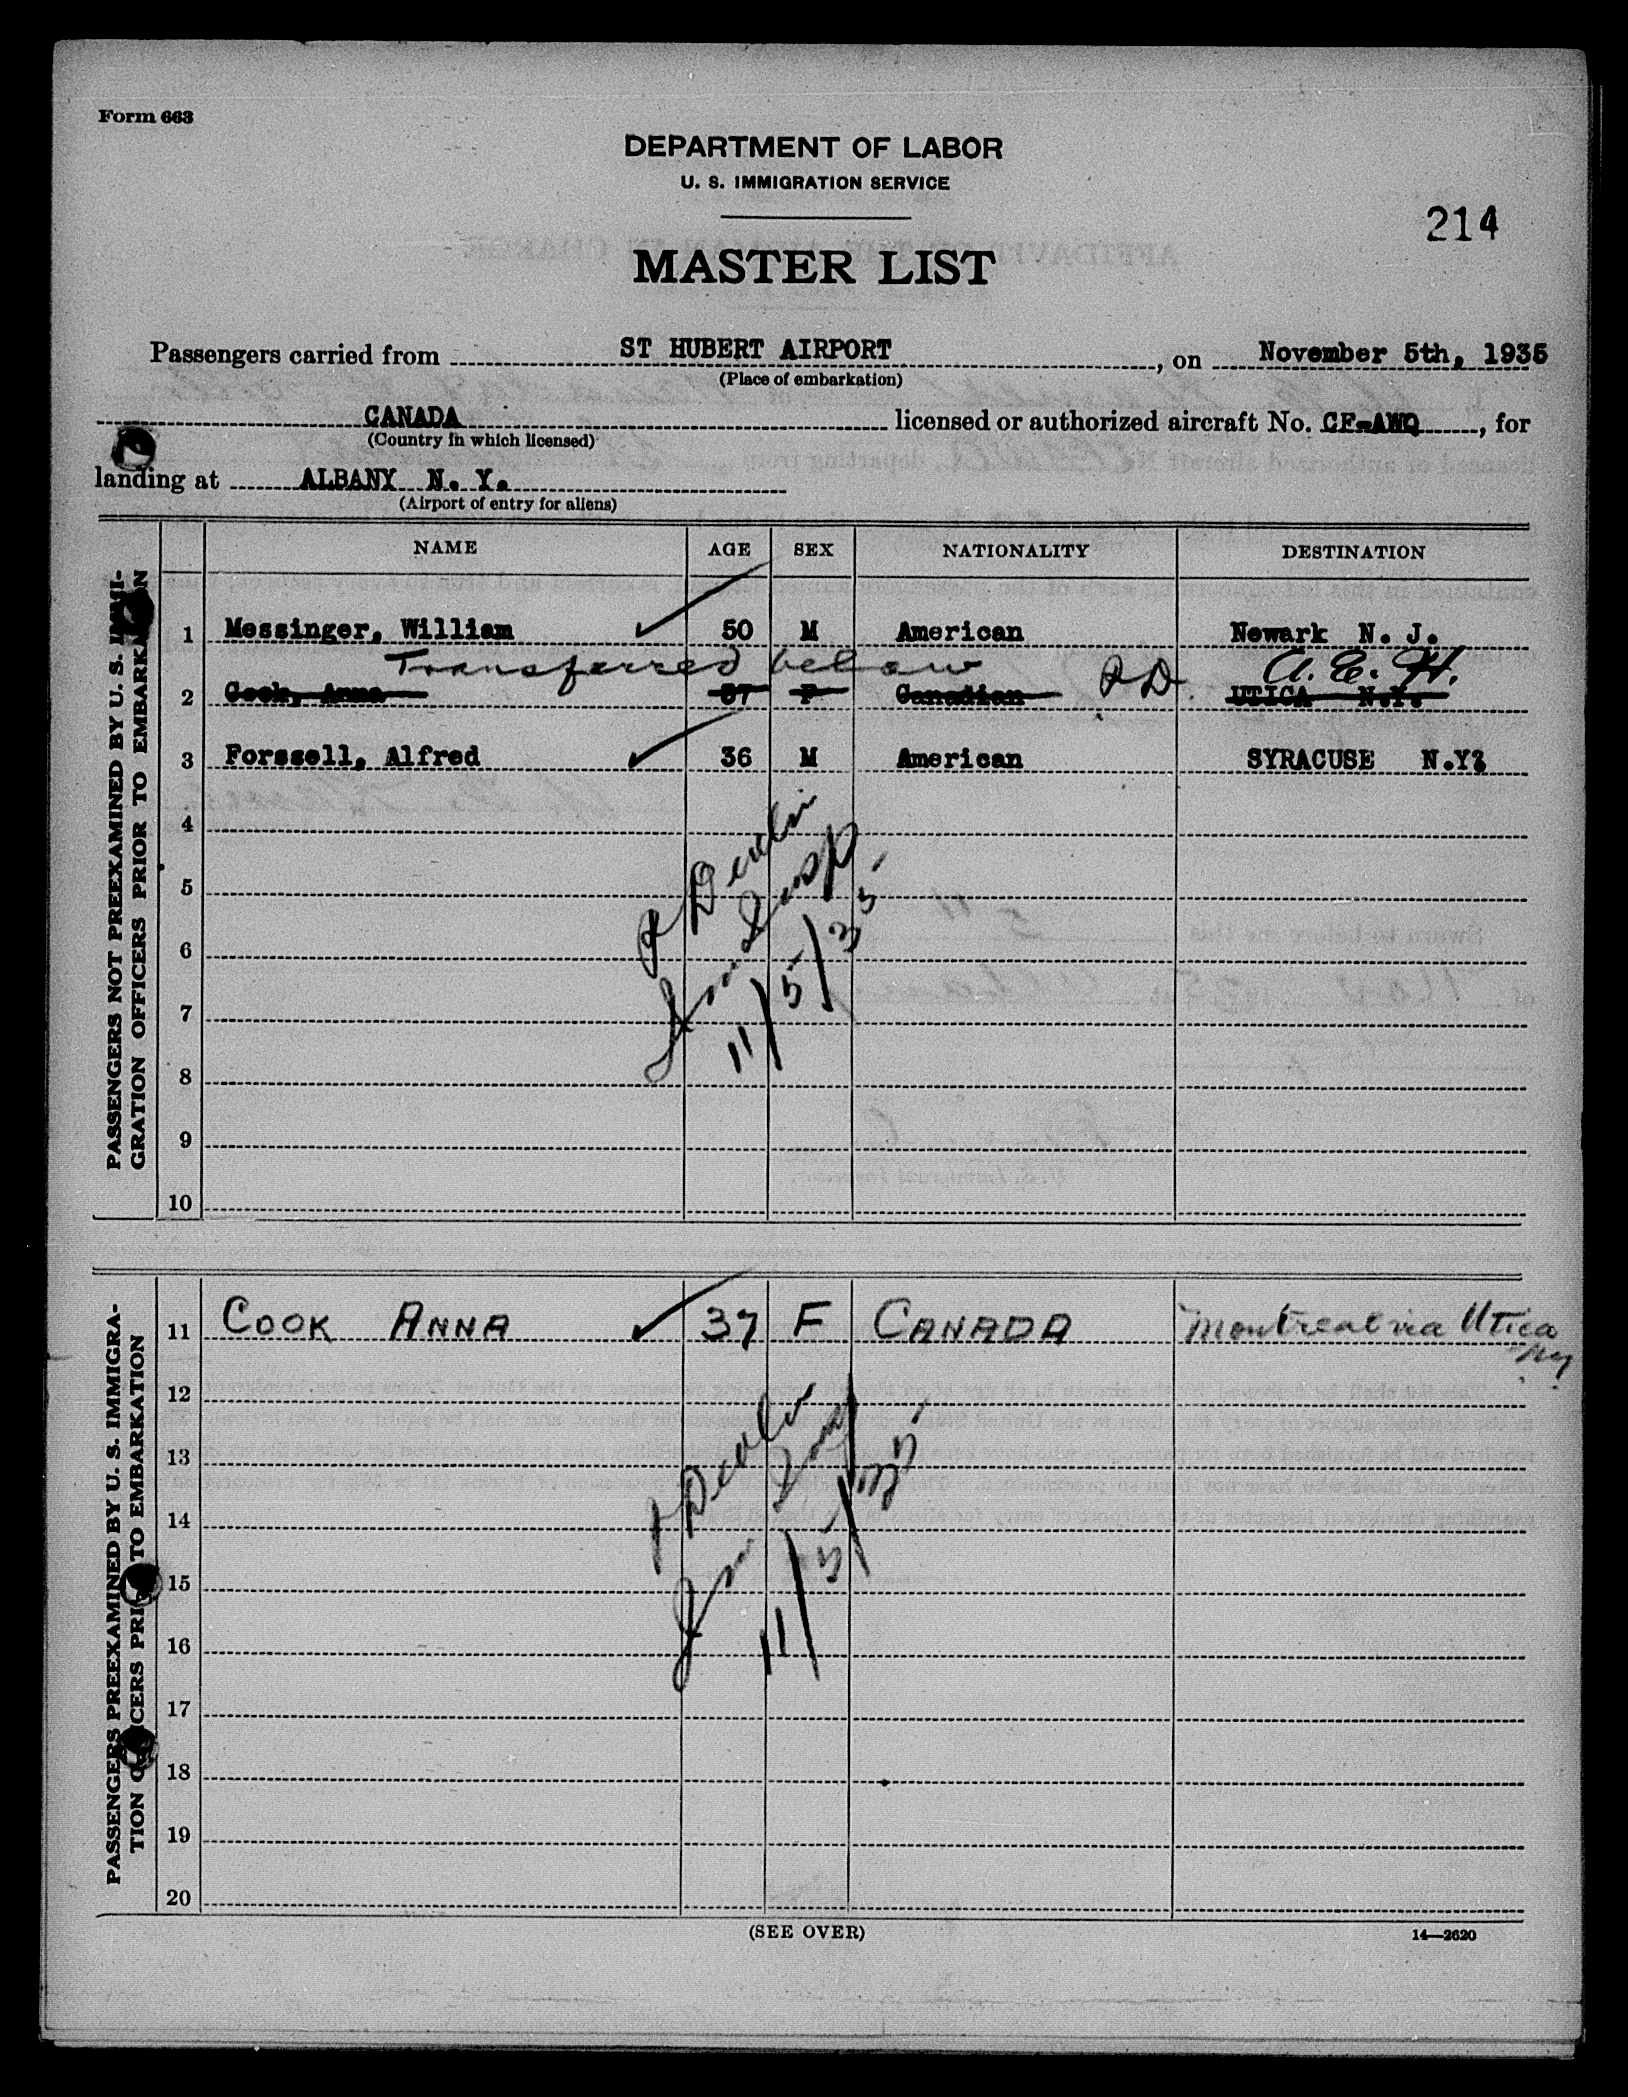 Form 663
DEPARTMENT OF LABOR
U. S. IMMIGRATION SERVICE
214
MASTER LIST
Passengers carried from ST HUBERT AIRPORT, on November 5th, 1935
(Place of embarkation)
CANADA licensed or authorized aircraft No. CF-AWQ, for
(Country in which licensed)
landing at ALBANY N. Y.
(Airport of entry for aliens)
PASSENGERS NOT PREEXAMINED BY U. S. IMMI-
GRATION OFFICERS PRIOR TO EMBARKATION
NAME AGE SEX NATIONALITY DESTINATION
1 Messinger, William 50 M American Newark N. J.
Transferred below PD. A. E. H.
2 Cook, Anna 37 F Canadian UTICA N.Y.
3 Forssell, Alfred 36 M American SYRACUSE N.Y?
4
5
6
7
8
9
10
Imm Insp
11/5/35
PASSENGERS PREEXAMINED BY U. S. IMMIGRA-
TION OFFICERS PRIOR TO EMBARKATION
11 COOK ANNA 37 F CANADA Montreal via Utica
NY
12
13
14
15
16
17
18
19
20
Imm Insp
11/5/35
(SEE OVER)
14—2620